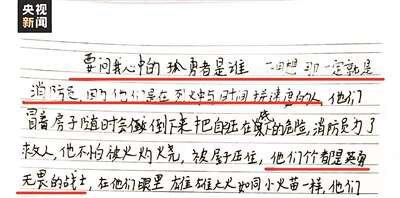 央视
新闻
要问我心中的 勇者是谁 一想 那一定就是
消防员,因为他们是在烈火中与时间 速度的人,他们
冒着房子随时会倒下来把自己压的危险,消防员为了
救人,他不怕被火灼烧,被屋子压住,他们个都是英勇
无畏的战士,在他们眼里 雄雄之火如同小火苗一样,他们